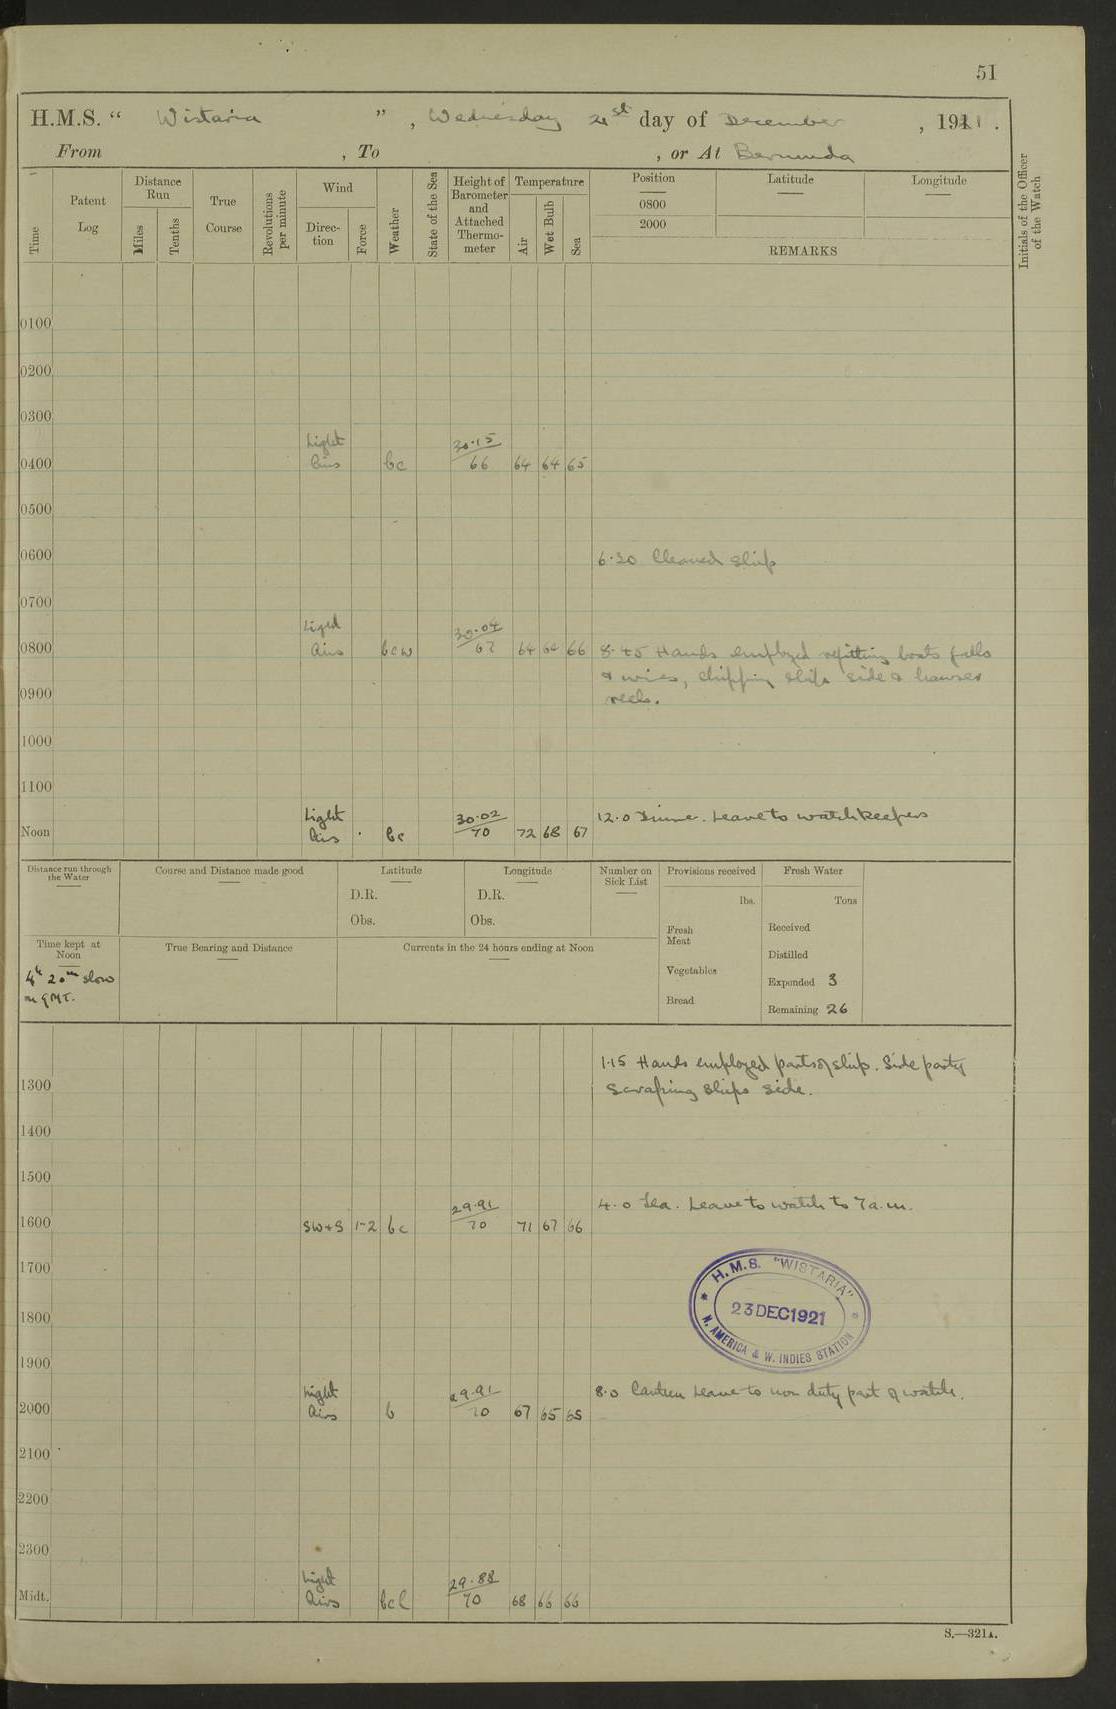 51
H.M.S. “ Wistaria ” , Wednesday 21st day of December , 1921 .
From , To , or At Bermuda
Time
Patent Log
Distance Run
Miles
Tenths
True Course
Revolutions per minute
Wind
Direc- tion
Force
Weather
State of the Sea
Height of Barometer and Attached Thermo- meter
Temperature
Air
Wet Bulb
Sea
Position
0800
2000
Latitude
Longitude
REMARKS
Initials of the Officer of the Watch
0100
0200
0300
Light 30.15
0400 Airs bc 66 64 64 65
0500
0600 6.30 Cleaned Ship
0700
Light 30.04
0800 Airs bcw 67 64 64 66 8.45 Hands employed refitting boats falls
& wires, chipping ships side & hawser
0900 reels.
1000
1100
Light 30.02 12.0 Dinner. Leave to watchkeepers
Noon Airs bc 70 72 68 67
Distance run through the Water
Course and Distance made good
Latitude
D.R.
Obs.
Longitude
D.R.
Obs.
Number on Sick List
Provisions received
lbs.
Fresh Meat
Vegetables
Bread
Fresh Water
Tons
Received
Distilled
Expended 3
Remaining 26
Time kept at Noon
4h 20m slow
on GMT.
True Bearing and Distance
Currents in the 24 hours ending at Noon
1.15 Hands employed parts of ship. Side party
1300 Scraping ships side.
1400
1500
29.91 4.0 Tea. Leave to watch to 7 a.m.
1600 SW+S 1-2 bc 70 71 67 66
1700
H.M.S. "WISTARIA"
23 DEC 1921
N. AMERICA & W. INDIES STATION
1800
1900
Light 29.91 8.0 Canteen Leave to non duty part of watch.
2000 Airs b 70 67 65 65
2100
2200
2300
Light 29.88
Midt. Airs bcl 70 68 66 66
S.—321A.